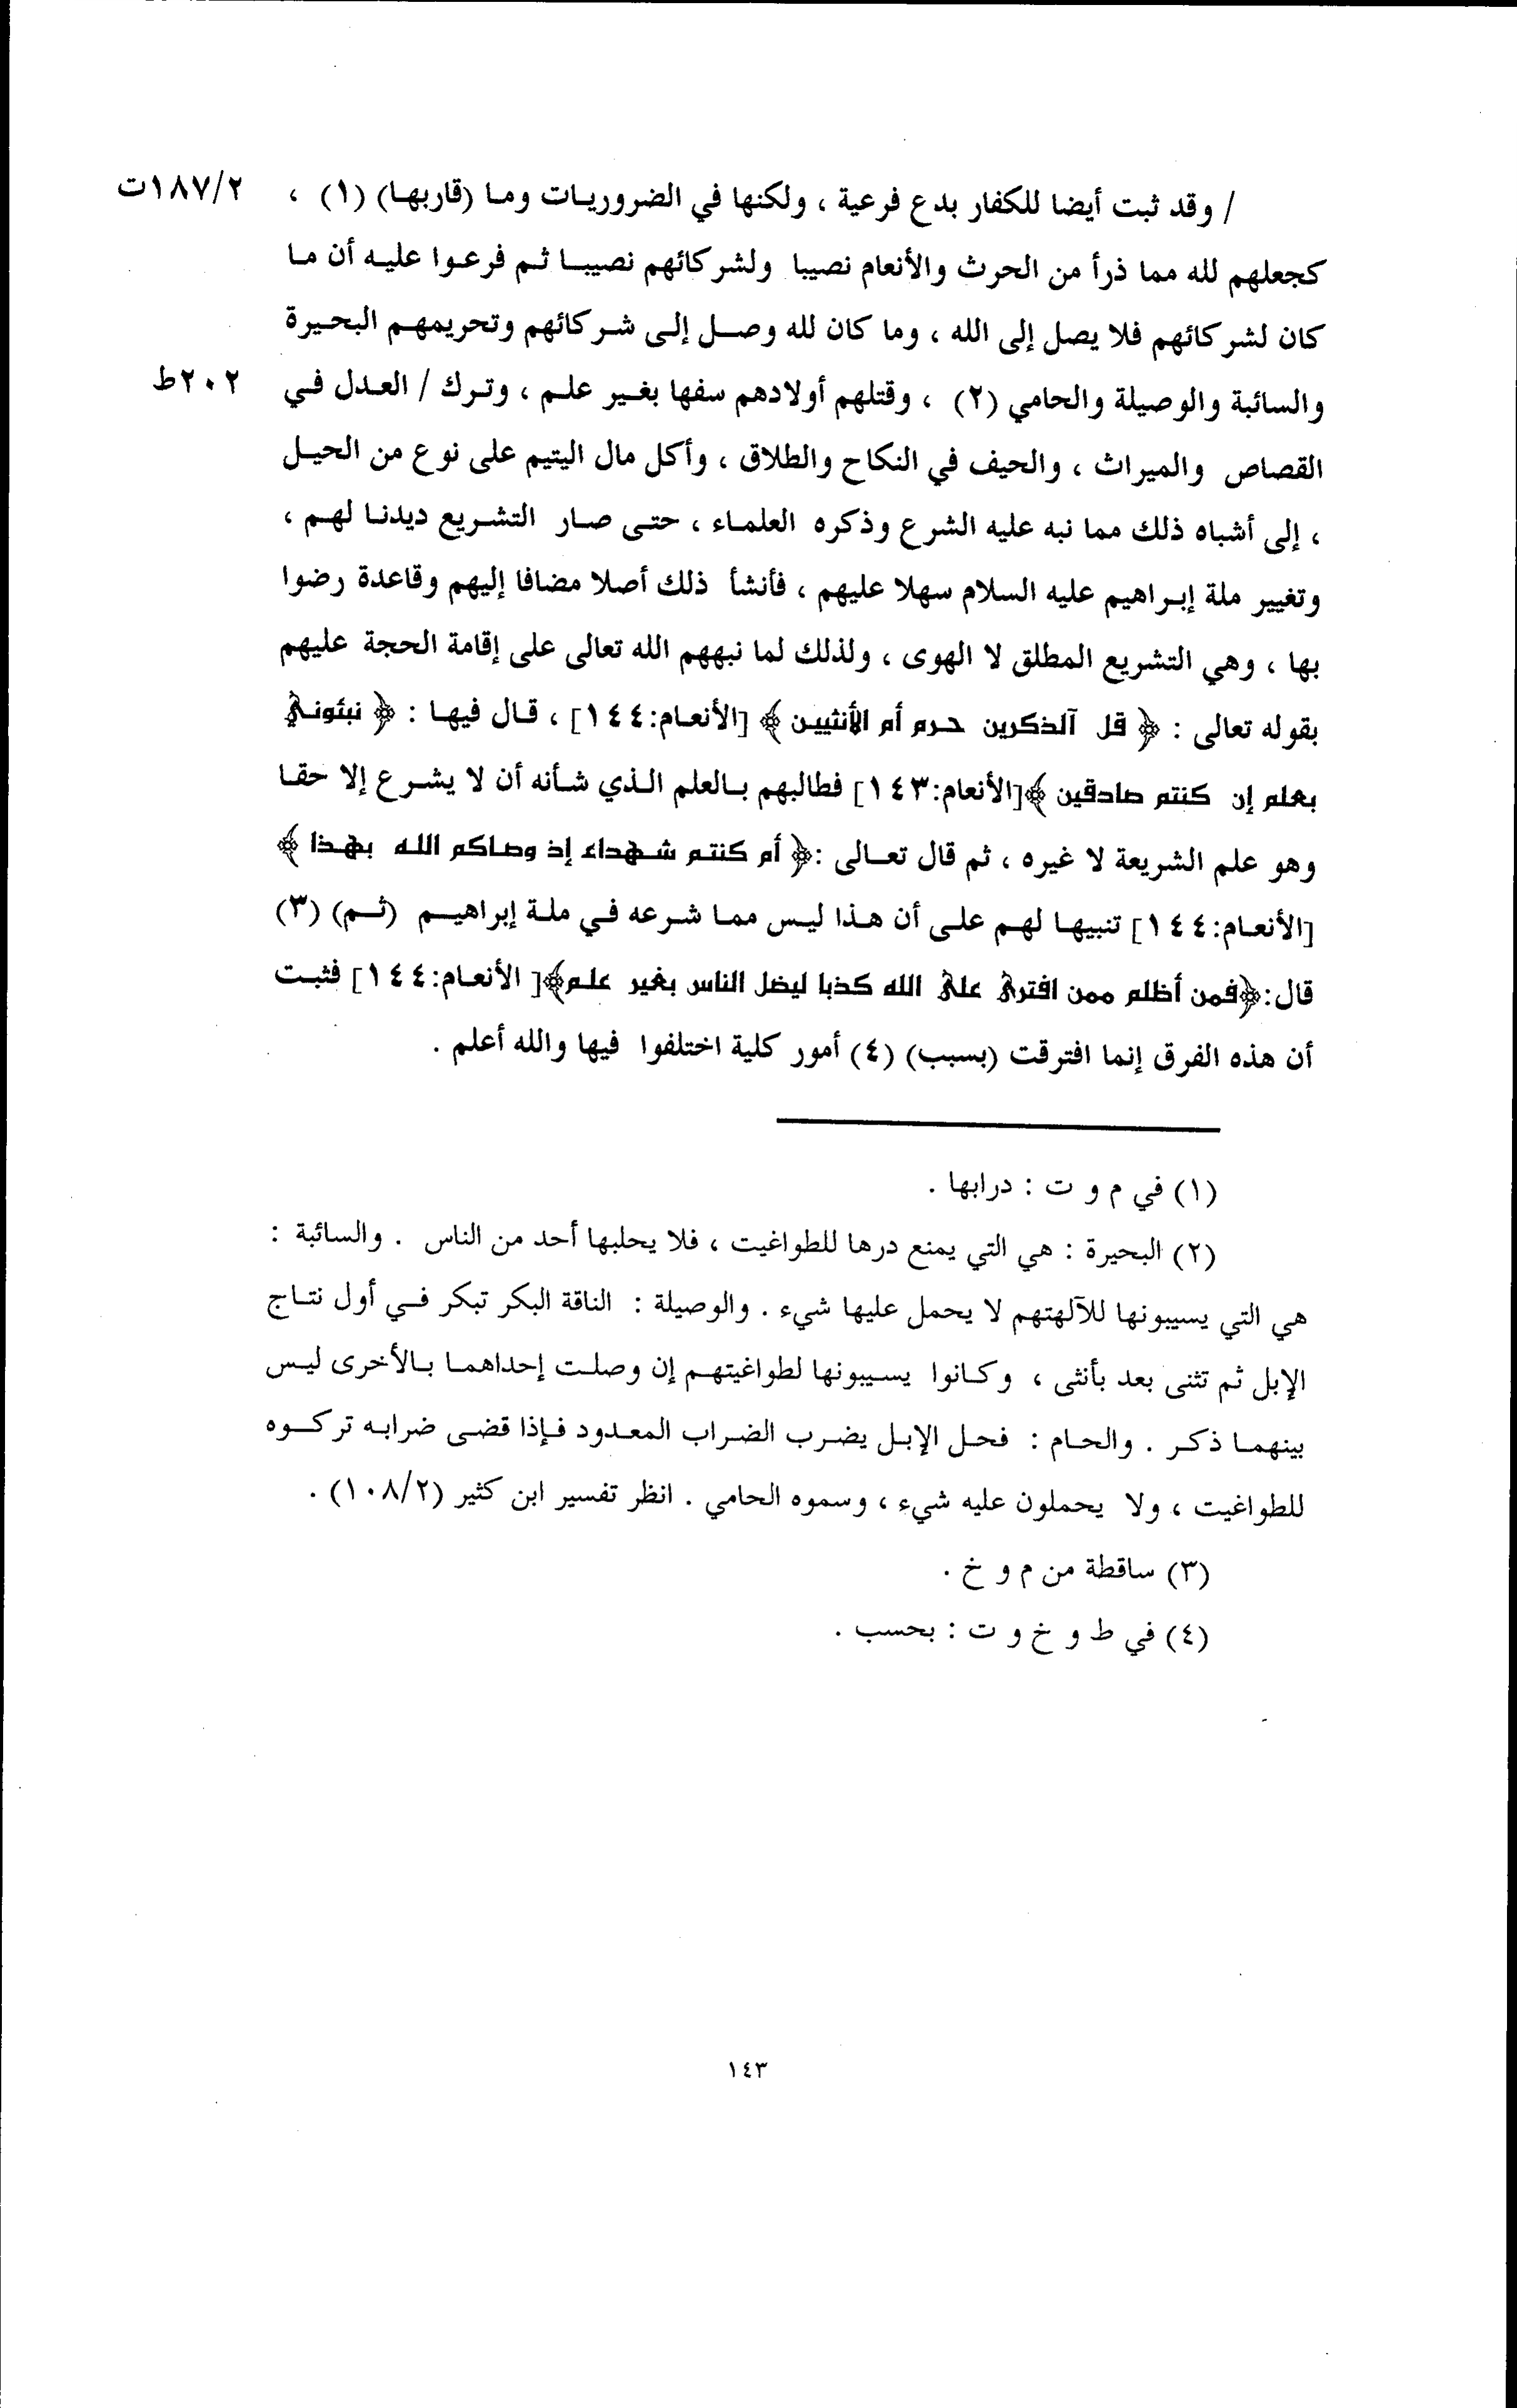 / وقد ثبت أيضا للكفار بدع فرعية ، ولكنها في الضروريات وما (قاربها) (١) ، ١٨٧/٢ت
كجعلهم لله مما ذرأ من الحرث والأنعام نصيبا ولشركائهم نصيبا ثم فرعوا عليه أن ما
كان لشركائهم فلا يصل إلى الله ، وما كان لله وصل إلى شركائهم وتحريمهم البحيرة
والسائبة والوصيلة والحامي (٢) ، وقتلهم أولادهم سفها بغير علم ، وترك / العدل في ٢٠٢ط
القصاص والميراث ، والحيف في النكاح والطلاق ، وأكل مال اليتيم على نوع من الحيل
، إلى أشباه ذلك مما نبه عليه الشرع وذكره العلماء ، حتى صار التشريع ديدنا لهم ،
وتغيير ملة إبراهيم عليه السلام سهلا عليهم ، فأنشأ ذلك أصلا مضافا إليهم وقاعدة رضوا
بها ، وهي التشريع المطلق لا الهوى ، ولذلك لما نبههم الله تعالى على إقامة الحجة عليهم
بقوله تعالى : ﴿ قل آلذكرين حرم أم الأنثيين ﴾ [الأنعام:١٤٤] ، قال فيها : ﴿ نبئوني
بعلم إن كنتم صادقين ﴾[الأنعام:١٤٣] فطالبهم بالعلم الذي شأنه أن لا يشرع إلا حقا
وهو علم الشريعة لا غيره ، ثم قال تعالى :﴿ أم كنتم شهداء إذ وصاكم الله بهذا ﴾
[الأنعام:١٤٤] تنبيها لهم على أن هذا ليس مما شرعه في ملة إبراهيم (ثم) (٣)
قال:﴿فمن أظلم ممن افترى على الله كذبا ليضل الناس بغير علم﴾[ الأنعام:١٤٤] فثبت
أن هذه الفرق إنما افترقت (بسبب) (٤) أمور كلية اختلفوا فيها والله أعلم .
(١) في م و ت : درابها .
(٢) البحيرة : هي التي يمنع درها للطواغيت ، فلا يحلبها أحد من الناس . والسائبة :
هي التي يسيبونها للآلهتهم لا يحمل عليها شيء . والوصيلة : الناقة البكر تبكر في أول نتاج
الإبل ثم تثنى بعد بأنثى ، وكانوا يسيبونها لطواغيتهم إن وصلت إحداهما بالأخرى ليس
بينهما ذكر . والحام : فحل الإبل يضرب الضراب المعدود فإذا قضى ضرابه تركوه
للطواغيت ، ولا يحملون عليه شيء ، وسموه الحامي . انظر تفسير ابن كثير (١٠٨/٢) .
(٣) ساقطة من م و خ .
(٤) في ط و خ و ت : بحسب .
١٤٣